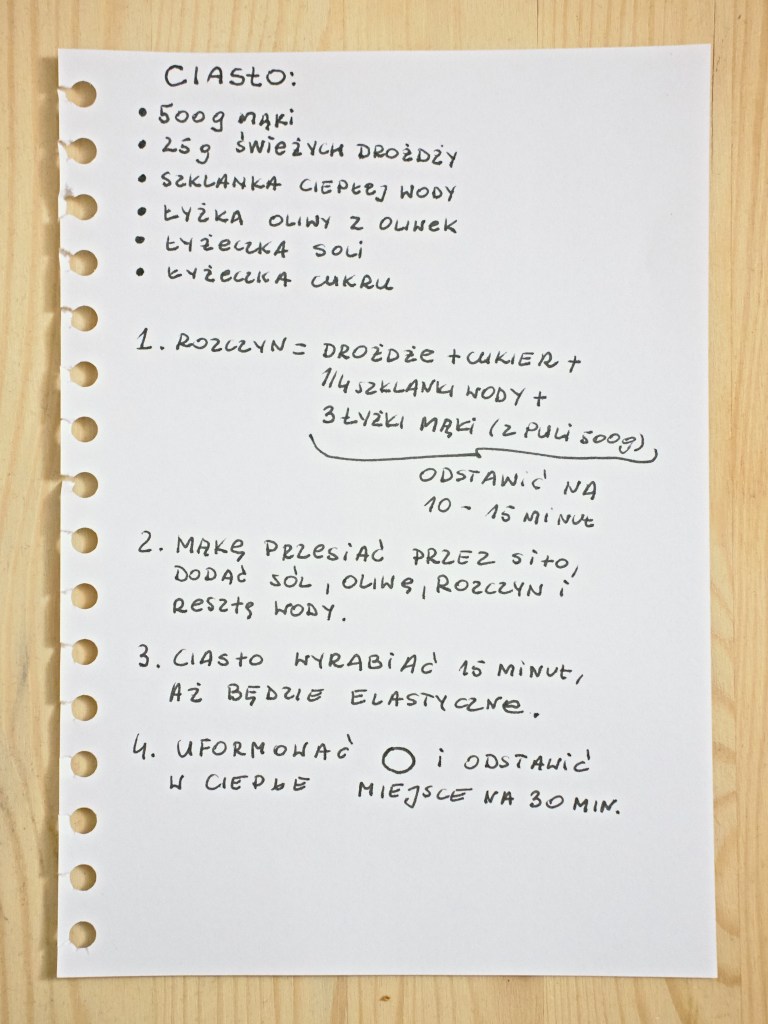 CIASŁO:
• 500g MĄKI
• 25g ŚWIEŻYCH DROŻDŻY
• SZKLANKA CIEPŁEJ WODY
• ŁYŻKA OLIWY Z OLIWEK
• ŁYŻECZKA SOLI
• ŁYŻECZKA CUKRU
1. ROZCZYN = DROŻDŻE + CUKIER +
1/4 SZKLANKI WODY +
3 ŁYŻKI MĄKI (Z PULI 500g)
ODSTAWIĆ NA
10 - 15 MINUT
2. MĄKĘ PRZESIAĆ PRZEZ SITO,
DODAĆ SÓL, OLIWĘ, ROZCZYN i
RESZTĘ WODY.
3. CIASTO WYRABIAĆ 15 MINUT,
AŻ BĘDZIE ELASTYCZNE.
4. UFORMOWAĆ O i ODSTAWIĆ
W CIEPŁE MIEJSCE NA 30 MIN.